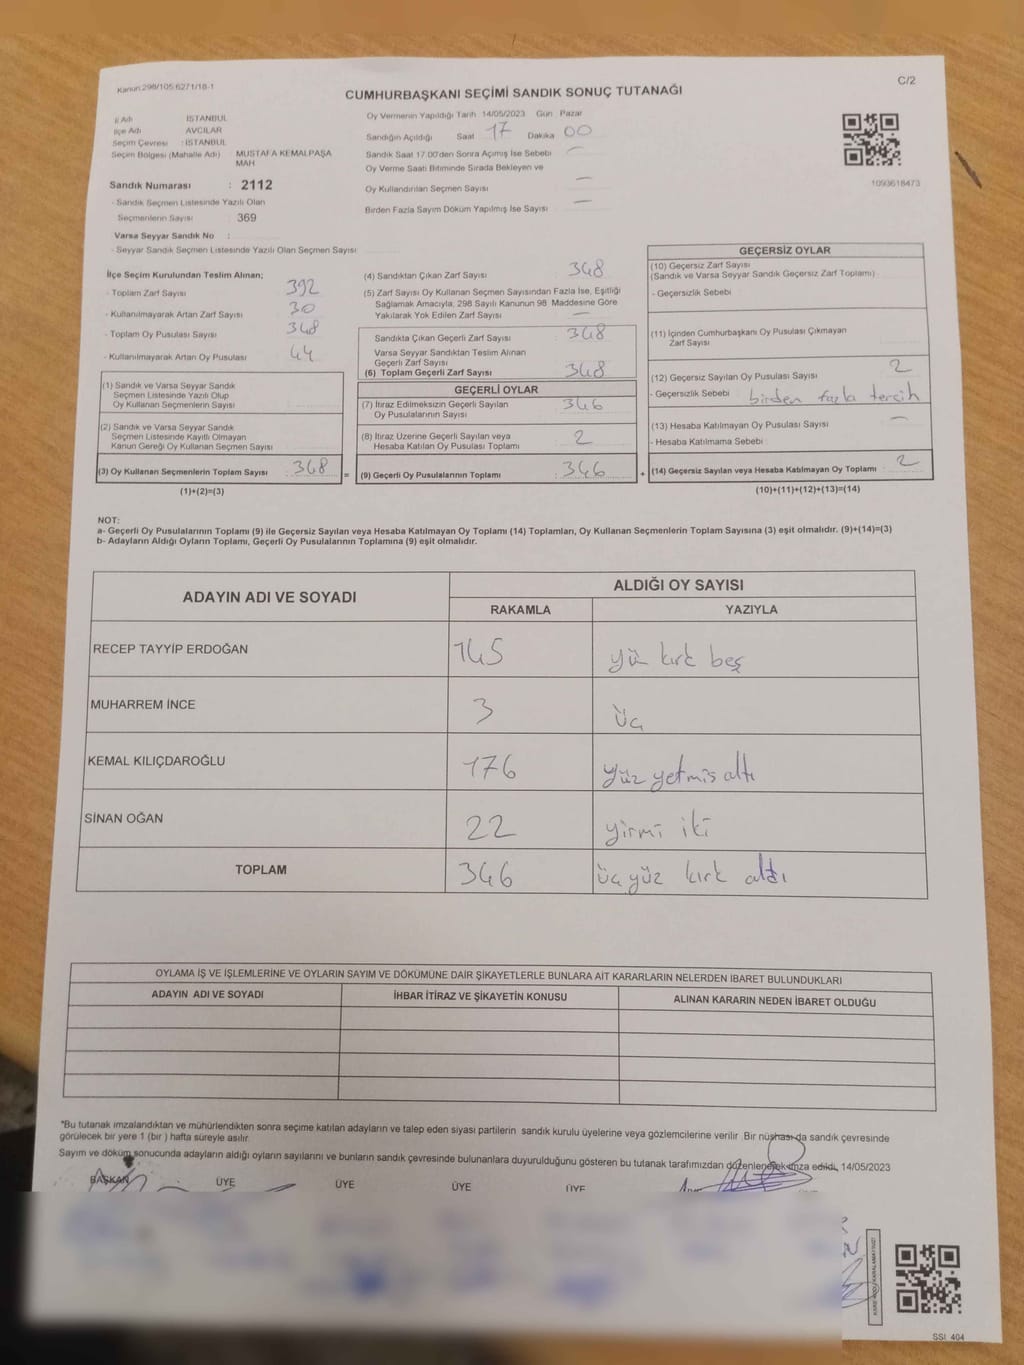 Kanun:298/105.6271/18-1
C/2
CUMHURBAŞKANI SEÇİMİ SANDIK SONUÇ TUTANAĞI
İl Adı : İSTANBUL
İlçe Adı : AVCILAR
Seçim Çevresi : İSTANBUL
Seçim Bölgesi (Mahalle Adı) : MUSTAFA KEMALPAŞA MAH
Sandık Numarası : 2112
- Sandık Seçmen Listesinde Yazılı Olan
Seçmenlerin Sayısı : 369
Varsa Seyyar Sandık No :
- Seyyar Sandık Seçmen Listesinde Yazılı Olan Seçmen Sayısı
Oy Vermenin Yapıldığı Tarih 14/05/2023 Gün : Pazar
Sandığın Açıldığı Saat 17 Dakika 00
Sandık Saat 17.00'den Sonra Açımış İse Sebebi —
Oy Verme Saati Bitiminde Sırada Bekleyen ve
Oy Kullandırılan Seçmen Sayısı —
Birden Fazla Sayım Döküm Yapılmış İse Sayısı —
1093618473
İlçe Seçim Kurulundan Teslim Alınan;
- Toplam Zarf Sayısı 392
- Kullanılmayarak Artan Zarf Sayısı 30
- Toplam Oy Pusulası Sayısı 348
- Kullanılmayarak Artan Oy Pusulası 44
(1) Sandık ve Varsa Seyyar Sandık
Seçmen Listesinde Yazılı Olup
Oy Kullanan Seçmenlerin Sayısı
(2) Sandık ve Varsa Seyyar Sandık
Seçmen Listesinde Kayıtlı Olmayan
Kanun Gereği Oy Kullanan Seçmen Sayısı
(3) Oy Kullanan Seçmenlerin Toplam Sayısı : 348 =
(1)+(2)=(3)
(4) Sandıktan Çıkan Zarf Sayısı 348
(5) Zarf Sayısı Oy Kullanan Seçmen Sayısından Fazla İse, Eşitliği
Sağlamak Amacıyla, 298 Sayılı Kanunun 98. Maddesine Göre
Yakılarak Yok Edilen Zarf Sayısı —
Sandıkta Çıkan Geçerli Zarf Sayısı 348
Varsa Seyyar Sandıktan Teslim Alınan
Geçerli Zarf Sayısı
(6) Toplam Geçerli Zarf Sayısı 348
GEÇERLİ OYLAR
(7) İtiraz Edilmeksizin Geçerli Sayılan
Oy Pusulalarının Sayısı 346
(8) İtiraz Üzerine Geçerli Sayılan veya
Hesaba Katılan Oy Pusulası Toplamı 2
(9) Geçerli Oy Pusulalarının Toplamı : 346 +
GEÇERSİZ OYLAR
(10) Geçersiz Zarf Sayısı
(Sandık ve Varsa Seyyar Sandık Geçersiz Zarf Toplamı)
- Geçersizlik Sebebi
(11) İçinden Cumhurbaşkanı Oy Pusulası Çıkmayan
Zarf Sayısı
(12) Geçersiz Sayılan Oy Pusulası Sayısı 2
- Geçersizlik Sebebi birden fazla tercih
(13) Hesaba Katılmayan Oy Pusulası Sayısı —
- Hesaba Katılmama Sebebi
(14) Geçersiz Sayılan veya Hesaba Katılmayan Oy Toplamı : 2
(10)+(11)+(12)+(13)=(14)
NOT:
a- Geçerli Oy Pusulalarının Toplamı (9) ile Geçersiz Sayılan veya Hesaba Katılmayan Oy Toplamı (14) Toplamları, Oy Kullanan Seçmenlerin Toplam Sayısına (3) eşit olmalıdır. (9)+(14)=(3)
b- Adayların Aldığı Oyların Toplamı, Geçerli Oy Pusulalarının Toplamına (9) eşit olmalıdır.
ADAYIN ADI VE SOYADI
ALDIĞI OY SAYISI
RAKAMLA YAZIYLA
RECEP TAYYİP ERDOĞAN 145 yüz kırk beş
MUHARREM İNCE 3 üç
KEMAL KILIÇDAROĞLU 176 yüz yetmiş altı
SİNAN OĞAN 22 yirmi iki
TOPLAM 346 üç yüz kırk altı
OYLAMA İŞ VE İŞLEMLERİNE VE OYLARIN SAYIM VE DÖKÜMÜNE DAİR ŞİKAYETLERLE BUNLARA AİT KARARLARIN NELERDEN İBARET BULUNDUKLARI
ADAYIN ADI VE SOYADI İHBAR İTİRAZ VE ŞİKAYETİN KONUSU ALINAN KARARIN NEDEN İBARET OLDUĞU
*Bu tutanak imzalandıktan ve mühürlendikten sonra seçime katılan adayların ve talep eden siyasi partilerin sandık kurulu üyelerine veya gözlemcilerine verilir. Bir nüshası da sandık çevresinde
görülecek bir yere 1 (bir) hafta süreyle asılır.
Sayım ve döküm sonucunda adayların aldığı oyların sayılarını ve bunların sandık çevresinde bulunanlara duyurulduğunu gösteren bu tutanak tarafımızdan düzenlenerek imza edildi, 14/05/2023
BAŞKAN ÜYE ÜYE ÜYE ÜYE
KARE KODU KARALAMAYINIZ!
SSİ 404